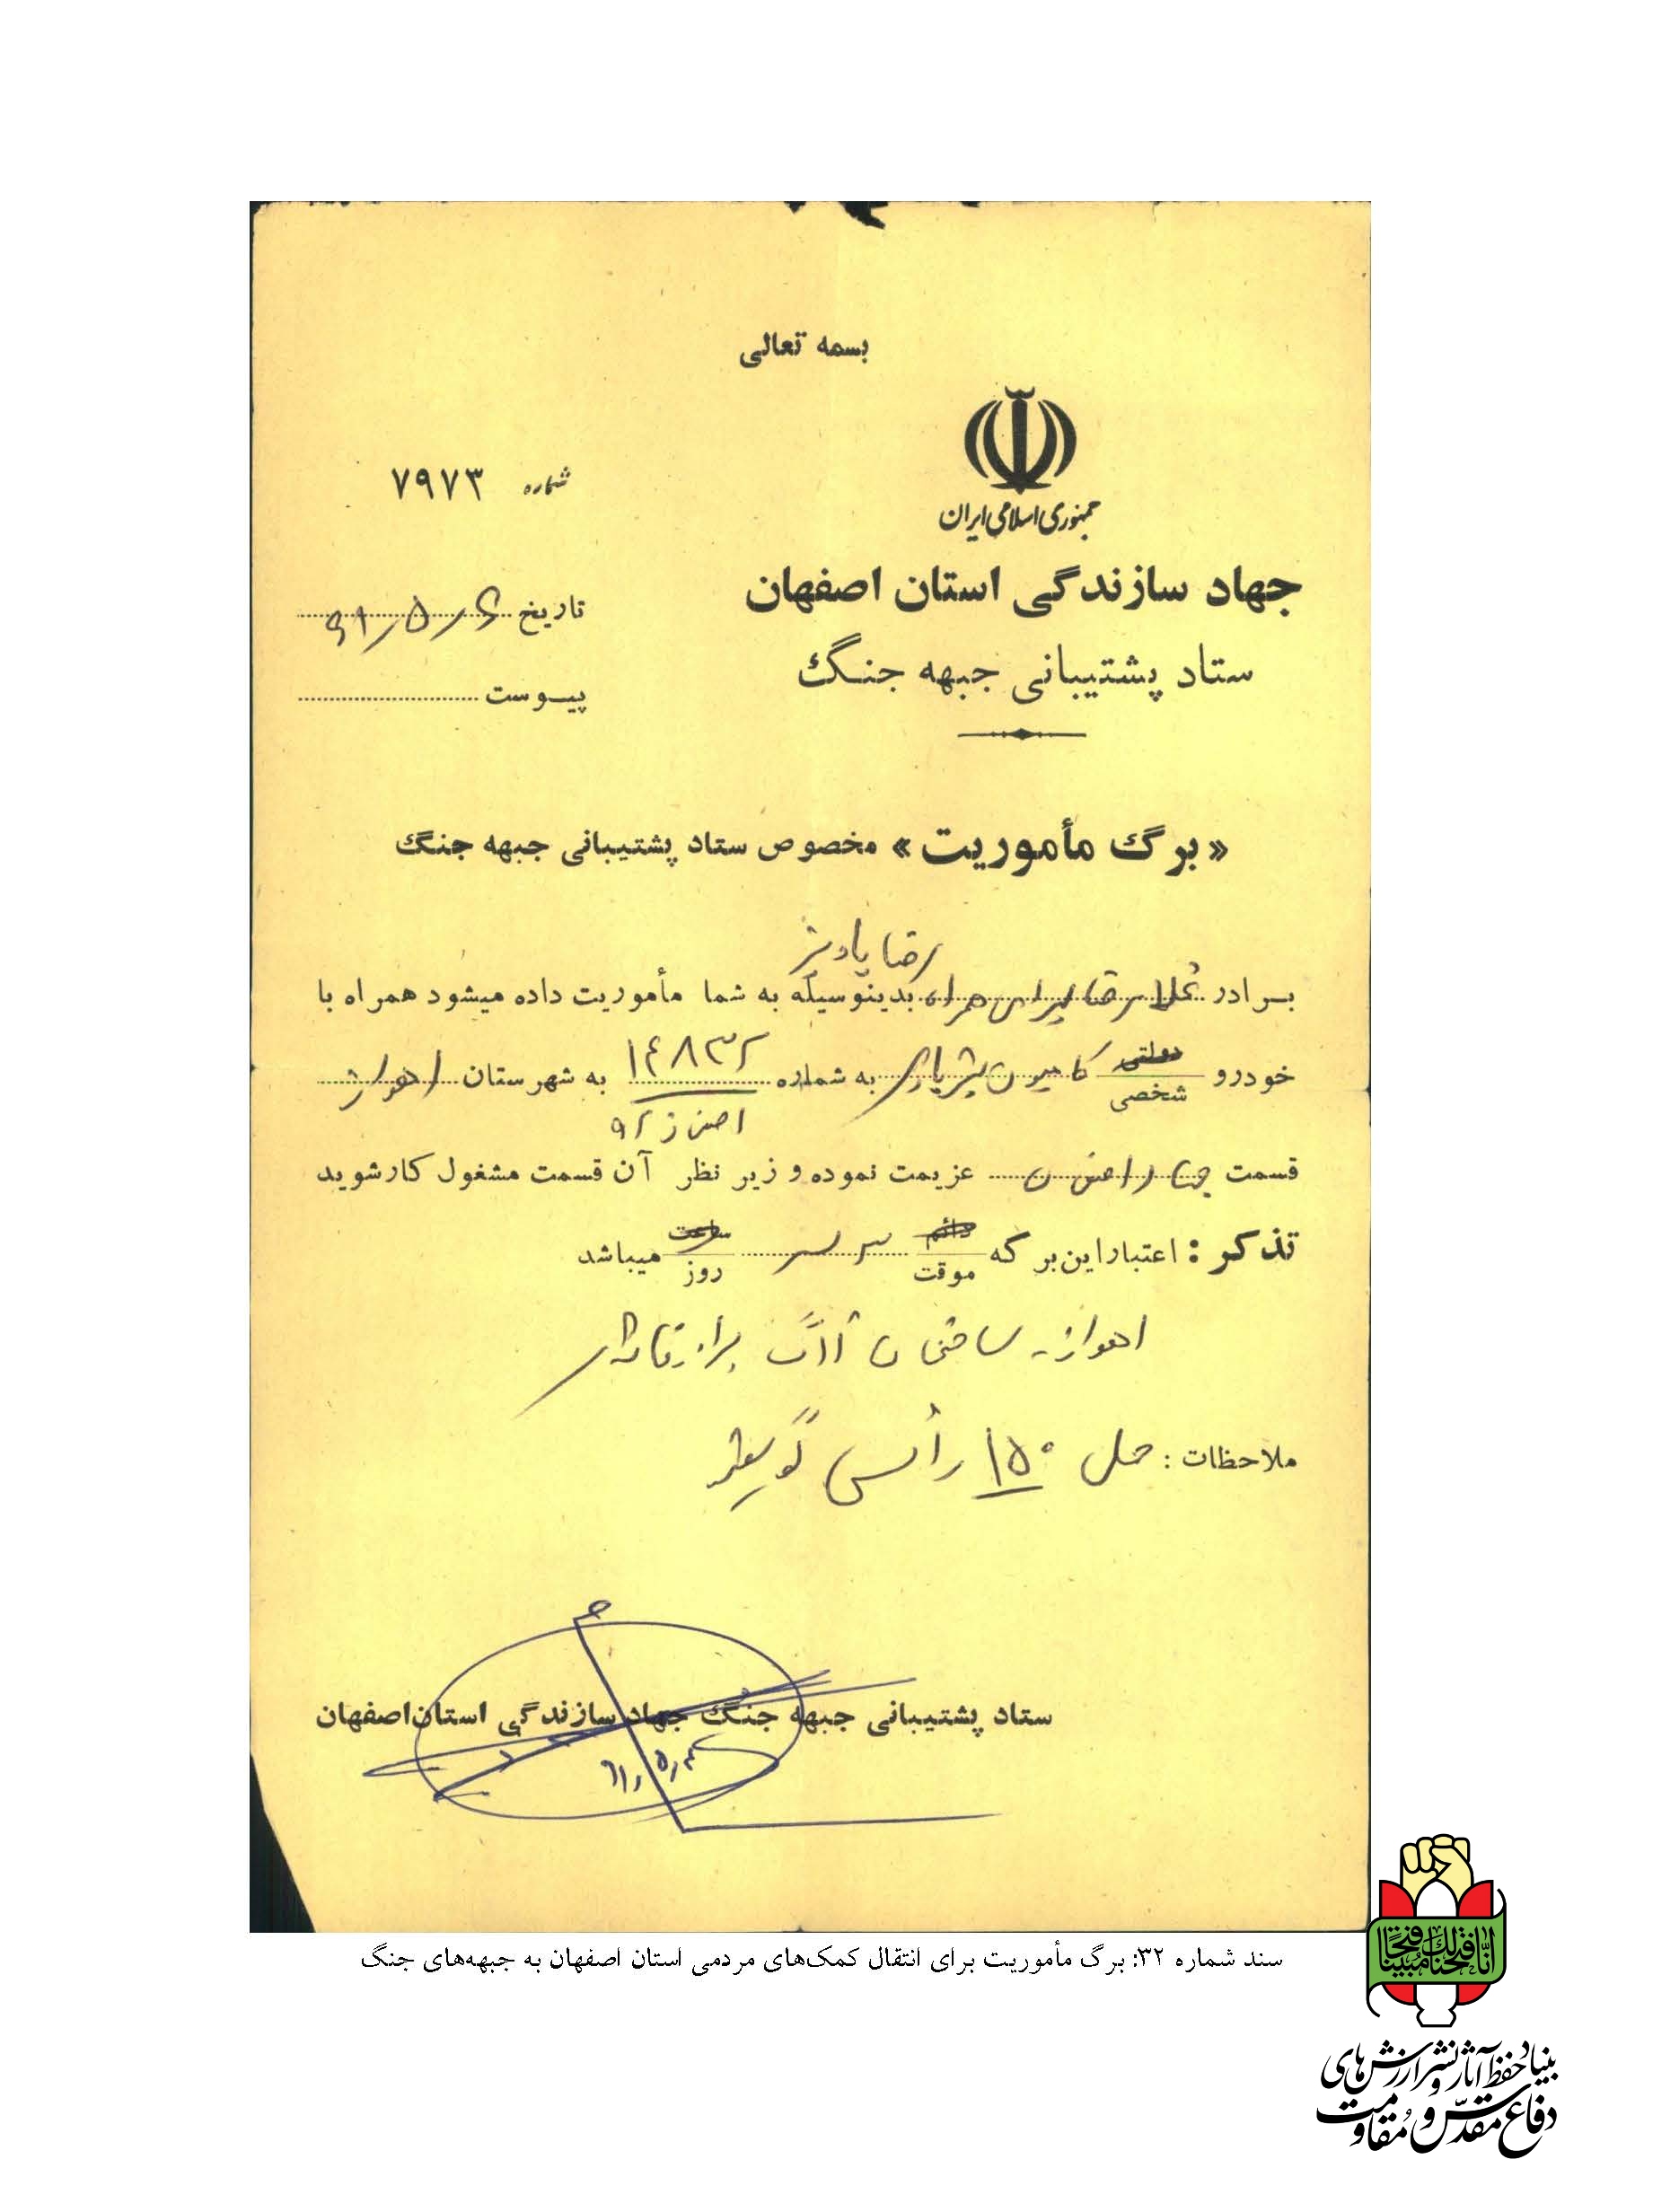 بسمه تعالی
جمهوری اسلامی ایران
شماره ۷۹۷۳
جهاد سازندگی استان اصفهان
تاریخ ۶ / ۵ / ۶۱
ستاد پشتیبانی جبهه جنگ
پیوست
«برگ مأموریت» مخصوص ستاد پشتیبانی جبهه جنگ
رضا
برادر غلامرضا همراه بدینوسیله به شما مأموریت داده میشود همراه با
خودرو دولتی شخصی کامیون به شماره ۱۴۸۳۲ به شهرستان اهواز
قسمت عزیمت نموده و زیر نظر آن قسمت مشغول کار شوید
تذکر: اعتبار این برگه دائم موقت ساعت روز میباشد
اهواز - ساختمان
ملاحظات: حمل ۱۵۰ رأس گوسفند
ستاد پشتیبانی جبهه جنگ جهاد سازندگی استان اصفهان
سند شماره ۳۲: برگ مأموریت برای انتقال کمک‌های مردمی استان اصفهان به جبهه‌های جنگ
انا فتحنا لک فتحا مبینا
بنیاد حفظ آثار و نشر ارزش‌های
دفاع مقدس و مقاومت